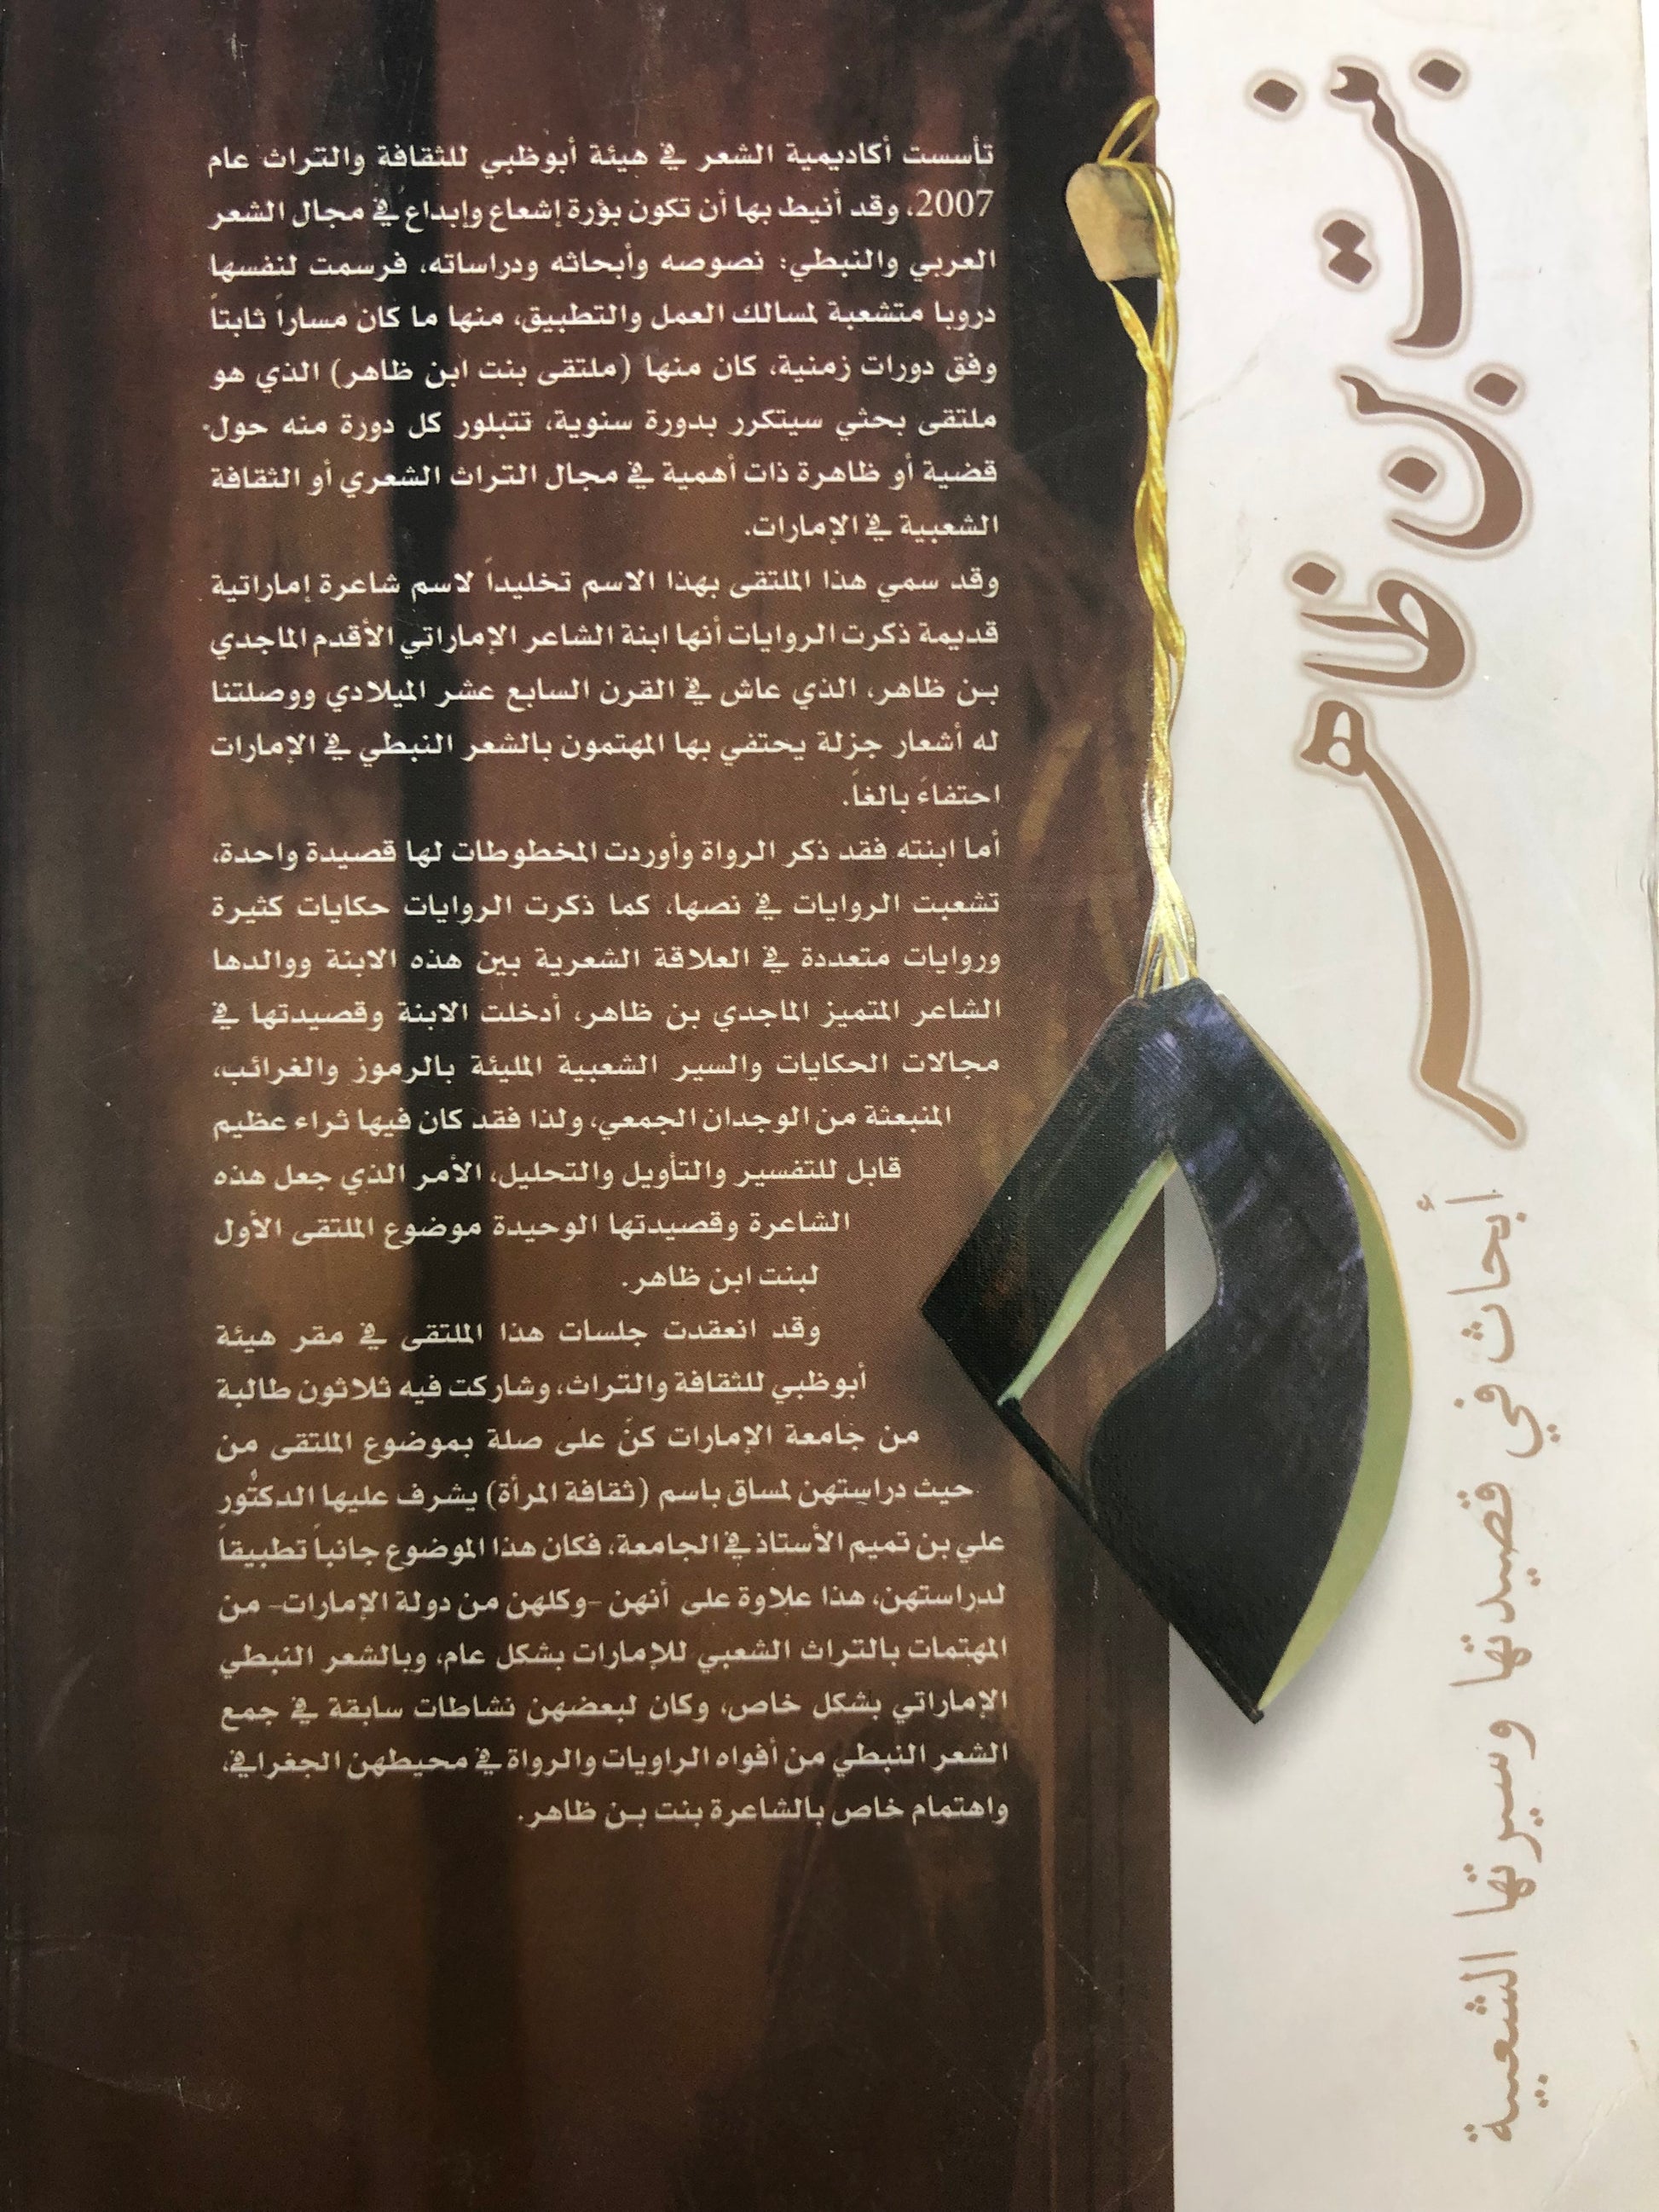 بنت بن ظاهر
أبحاث في قصيدتها وسيرتها الشعبية
تأسست أكاديمية الشعر في هيئة أبوظبي للثقافة والتراث عام
2007، وقد أنيط بها أن تكون بؤرة إشعاع وإبداع في مجال الشعر
العربي والنبطي: نصوصه وأبحاثه ودراساته، فرسمت لنفسها
دروبا متشعبة لمسالك العمل والتطبيق، منها ما كان مساراً ثابتاً
وفق دورات زمنية، كان منها (ملتقى بنت ابن ظاهر) الذي هو
ملتقى بحثي سيتكرر بدورة سنوية، تتبلور كل دورة منه حول
قضية أو ظاهرة ذات أهمية في مجال التراث الشعري أو الثقافة
الشعبية في الإمارات.
وقد سمي هذا الملتقى بهذا الاسم تخليداً لاسم شاعرة إماراتية
قديمة ذكرت الروايات أنها ابنة الشاعر الإماراتي الأقدم الماجدي
بن ظاهر، الذي عاش في القرن السابع عشر الميلادي ووصلتنا
له أشعار جزلة يحتفي بها المهتمون بالشعر النبطي في الإمارات
احتفاءً بالغاً.
أما ابنته فقد ذكر الرواة وأوردت المخطوطات لها قصيدة واحدة،
تشعبت الروايات في نصها، كما ذكرت الروايات حكايات كثيرة
وروايات متعددة في العلاقة الشعرية بين هذه الابنة ووالدها
الشاعر المتميز الماجدي بن ظاهر، أدخلت الابنة وقصيدتها في
مجالات الحكايات والسير الشعبية المليئة بالرموز والغرائب،
المنبعثة من الوجدان الجمعي، ولذا فقد كان فيها ثراء عظيم
قابل للتفسير والتأويل والتحليل، الأمر الذي جعل هذه
الشاعرة وقصيدتها الوحيدة موضوع الملتقى الأول
لبنت ابن ظاهر.
وقد انعقدت جلسات هذا الملتقى في مقر هيئة
أبوظبي للثقافة والتراث، وشاركت فيه ثلاثون طالبة
من جامعة الإمارات كنّ على صلة بموضوع الملتقى من
حيث دراستهن لمساق باسم (ثقافة المرأة) يشرف عليها الدكتور
علي بن تميم الأستاذ في الجامعة، فكان هذا الموضوع جانباً تطبيقاً
لدراستهن، هذا علاوة على أنهن -وكلهن من دولة الإمارات- من
المهتمات بالتراث الشعبي للإمارات بشكل عام، وبالشعر النبطي
الإماراتي بشكل خاص، وكان لبعضهن نشاطات سابقة في جمع
الشعر النبطي من أفواه الراويات والرواة في محيطهن الجغرافي،
واهتمام خاص بالشاعرة بنت بن ظاهر.